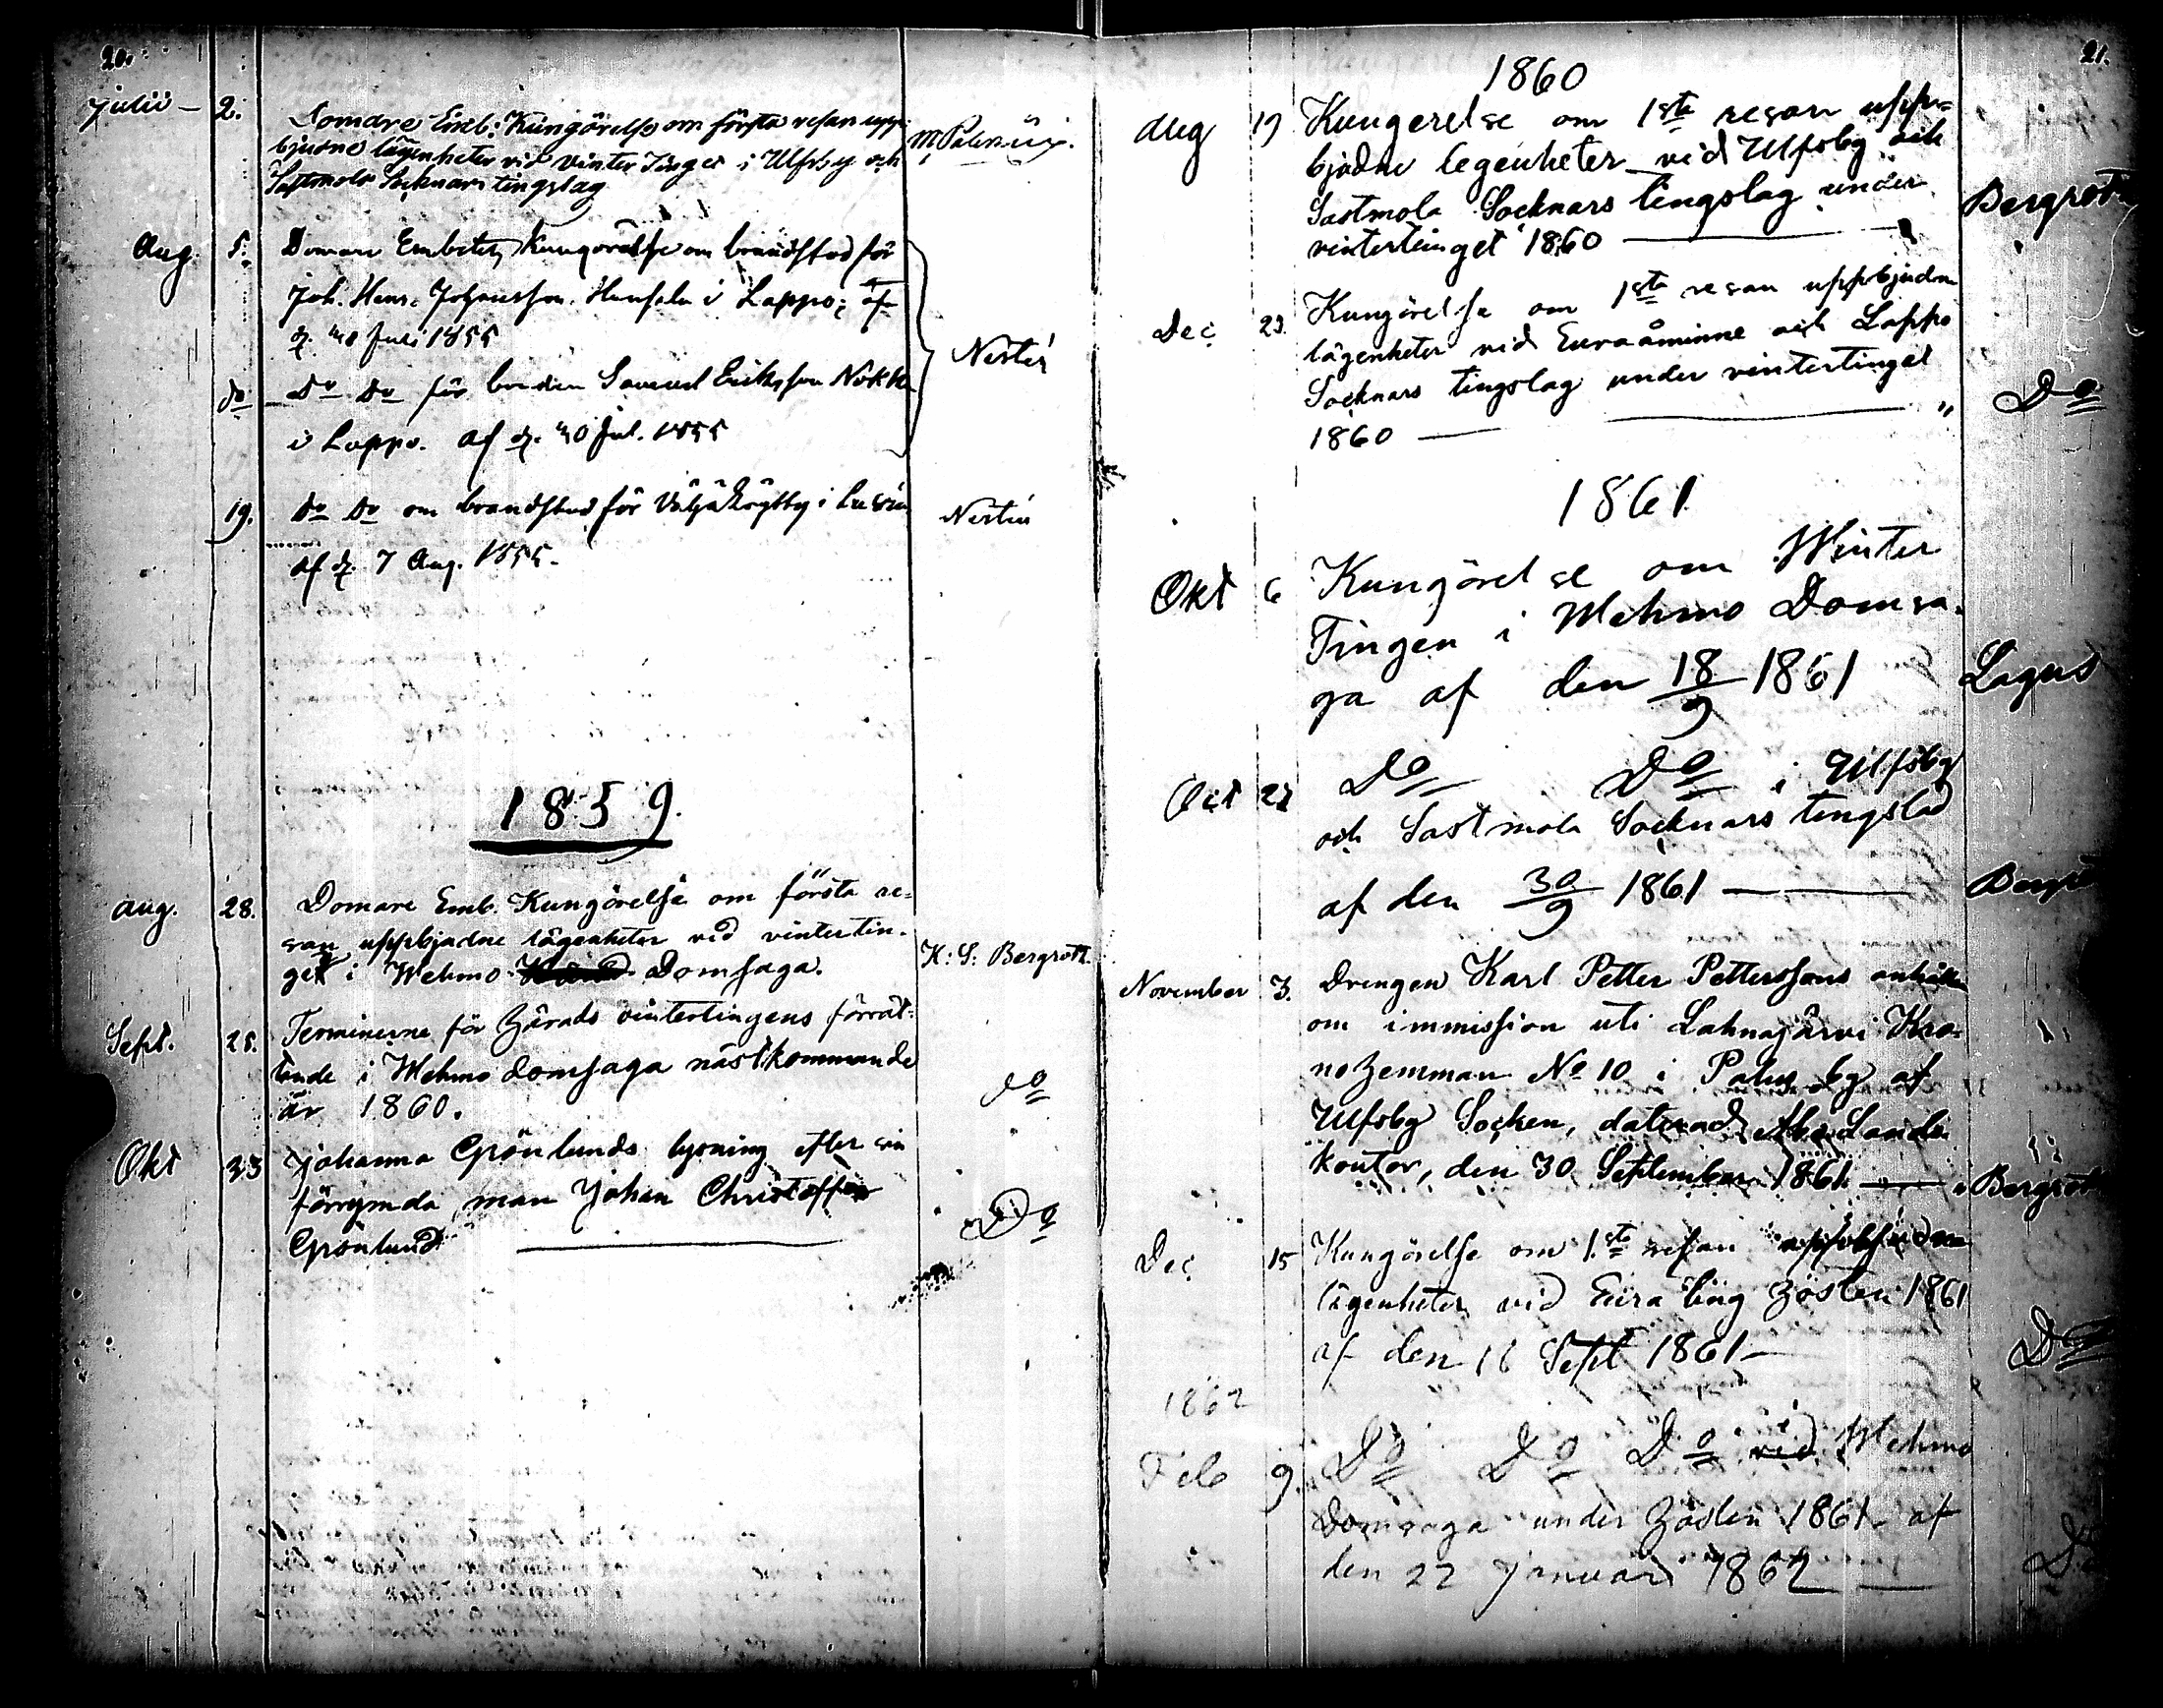 20.
Julii — 2. Domare Emb: Kungörelse om första resan upp-
bjudne lägenheter vid Vinter Tinget i Ulfsby och
Sastmola Socknars tingslag
Aug. 5. Domare Embetets Kungörelse om brandstod för
Joh. Henr. Johansson Hensela i Lappo; af
d. 30 Juli 1855
Nestér
do Do Do för bonden Samuel Eriksson Nokka
i Lappo. af d. 30 Jul. 1855
19. Do Do om brandstod för i
af d. 7 Aug. 1855.
Nestér
1859.
Aug. 28. Domare Emb. Kungörelse om första re-
san uppbjudne lägenheter vid vintertin-
get i Wehmo Domsaga.
K: S: Bergroth
Sept. 25. Terminerne för Härads vintertingens förrät-
tande i Wehmo domsaga nästkommande
år 1860.
do
Okt 23 Johanna Grönlunds lysning efter sin
förrymda man Johan Christoffer
Grönlund
Do
21.
1860
Aug 19 Kungerelse om 1sta resan upp-
bjudne legenheter vid Ulfsby och
Sastmola Socknars tingslag under
vintertinget 1860
Bergroth
Dec 23. Kungörelse om 1sta resan uppbjudne
lägenheter vid Euraåminne och Lappo
Socknars tingslag under vintertinget
1860 "
Do
1861
Okt 6 Kungörelse om Winter
Tingen i Wehmo Domsa-
ga af den 18/9 1861
Lagus
Oct 27 Do Do i Ulfsby
och Sastmola Socknars tingslad
af den 30/9 1861
Bergro
November 3. Drengen Karl Petter Petterssons
om immission uti Lahnajärvi Kro-
nohemman No 10 i Palus by af
Ulfsby Socken, daterad Åbo Lands
kontor, den 30 September 1861
Bergroth
Dec 15 Kungörelse om 1sta resan uppbjudna
lägenheter vid Eura ting hösten 1861
af den 16 Sept 1861
Do
1862
Feb 9. Do Do Do vid i Wehmo
Domsaga under hösten 1861 af
den 22 Januari 1862
Do